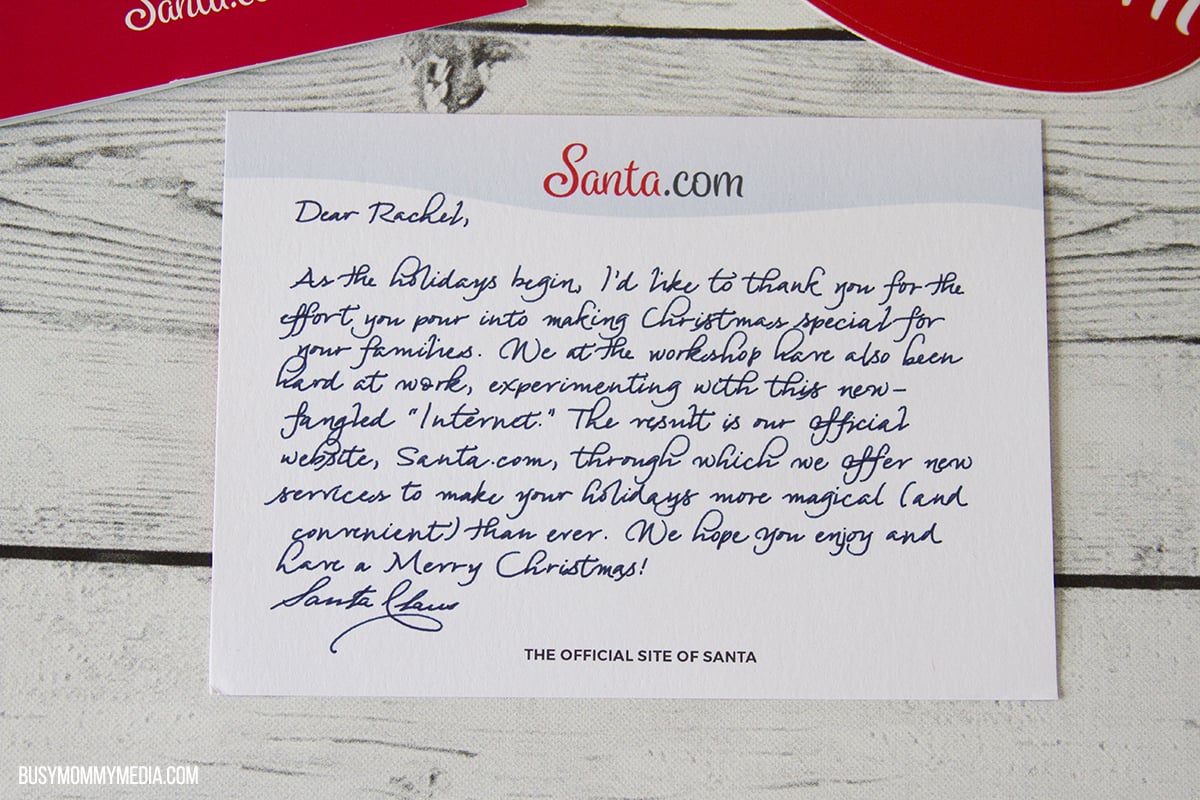 Santa.co
Santa.com
Dear Rachel,
As the holidays begin, I'd like to thank you for the
effort you pour into making Christmas special for
your families. We at the workshop have also been
hard at work, experimenting with this new-
fangled "Internet." The result is our official
website, Santa.com, through which we offer new
services to make your holidays more magical (and
convenient) than ever. We hope you enjoy and
have a Merry Christmas!
Santa Claus
THE OFFICIAL SITE OF SANTA
BUSYMOMMYMEDIA.COM